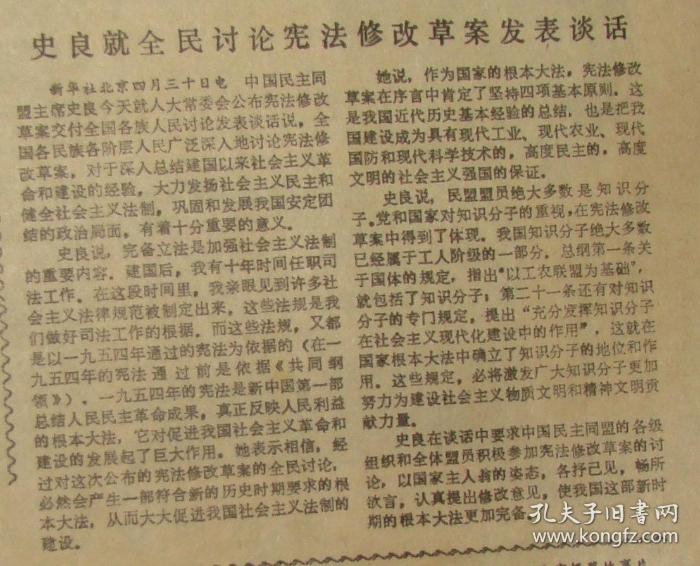 史良就全民讨论宪法修改草案发表谈话
新华社北京四月三十日电　中国民主同
盟主席史良今天就人大常委会公布宪法修改
草案交付全国各族人民讨论发表谈话说，全
国各民族各阶层人民广泛深入地讨论宪法修
改草案，对于深入总结建国以来社会主义革
命和建设的经验，大力发扬社会主义民主和
健全社会主义法制，巩固和发展我国安定团
结的政治局面，有着十分重要的意义。
史良说，完备立法是加强社会主义法制
的重要内容。建国后，我有十年时间任职司
法工作。在这段时间里，我亲眼见到许多社
会主义法律规范被制定出来，这些法规是我
们做好司法工作的根据。而这些法规，又都
是以一九五四年通过的宪法为依据的（在一
九五四年的宪法通过前是依据《共同纲
领》）。一九五四年的宪法是新中国第一部
总结人民民主革命成果，真正反映人民利益
的根本大法，它对促进我国社会主义革命和
建设的发展起了巨大作用。她表示相信，经
过对这次公布的宪法修改草案的全民讨论，
必然会产生一部符合新的历史时期要求的根
本大法，从而大大促进我国社会主义法制的
建设。
她说，作为国家的根本大法，宪法修改
草案在序言中肯定了坚持四项基本原则。这
是我国近代历史基本经验的总结，也是把我
国建设成为具有现代工业、现代农业、现代
国防和现代科学技术的，高度民主的，高度
文明的社会主义强国的保证。
史良说，民盟盟员绝大多数是知识分
子。党和国家对知识分子的重视，在宪法修改
草案中得到了体现。我国知识分子绝大多数
已经属于工人阶级的一部分。总纲第一条关
于国体的规定，指出“以工农联盟为基础”，
就包括了知识分子；第二十一条还有对知识
分子的专门规定，提出“充分发挥知识分子
在社会主义现代化建设中的作用”，这就在
国家根本大法中确立了知识分子的地位和作
用。这些规定，必将激发广大知识分子更加
努力为建设社会主义物质文明和精神文明贡
献力量。
史良在谈话中要求中国民主同盟的各级
组织和全体盟员积极参加宪法修改草案的讨
论，以国家主人翁的姿态，各抒己见，畅所
欲言，认真提出修改意见，使我国这部新时
期的根本大法更加完备。
孔夫子旧书网
www.kongfz.com